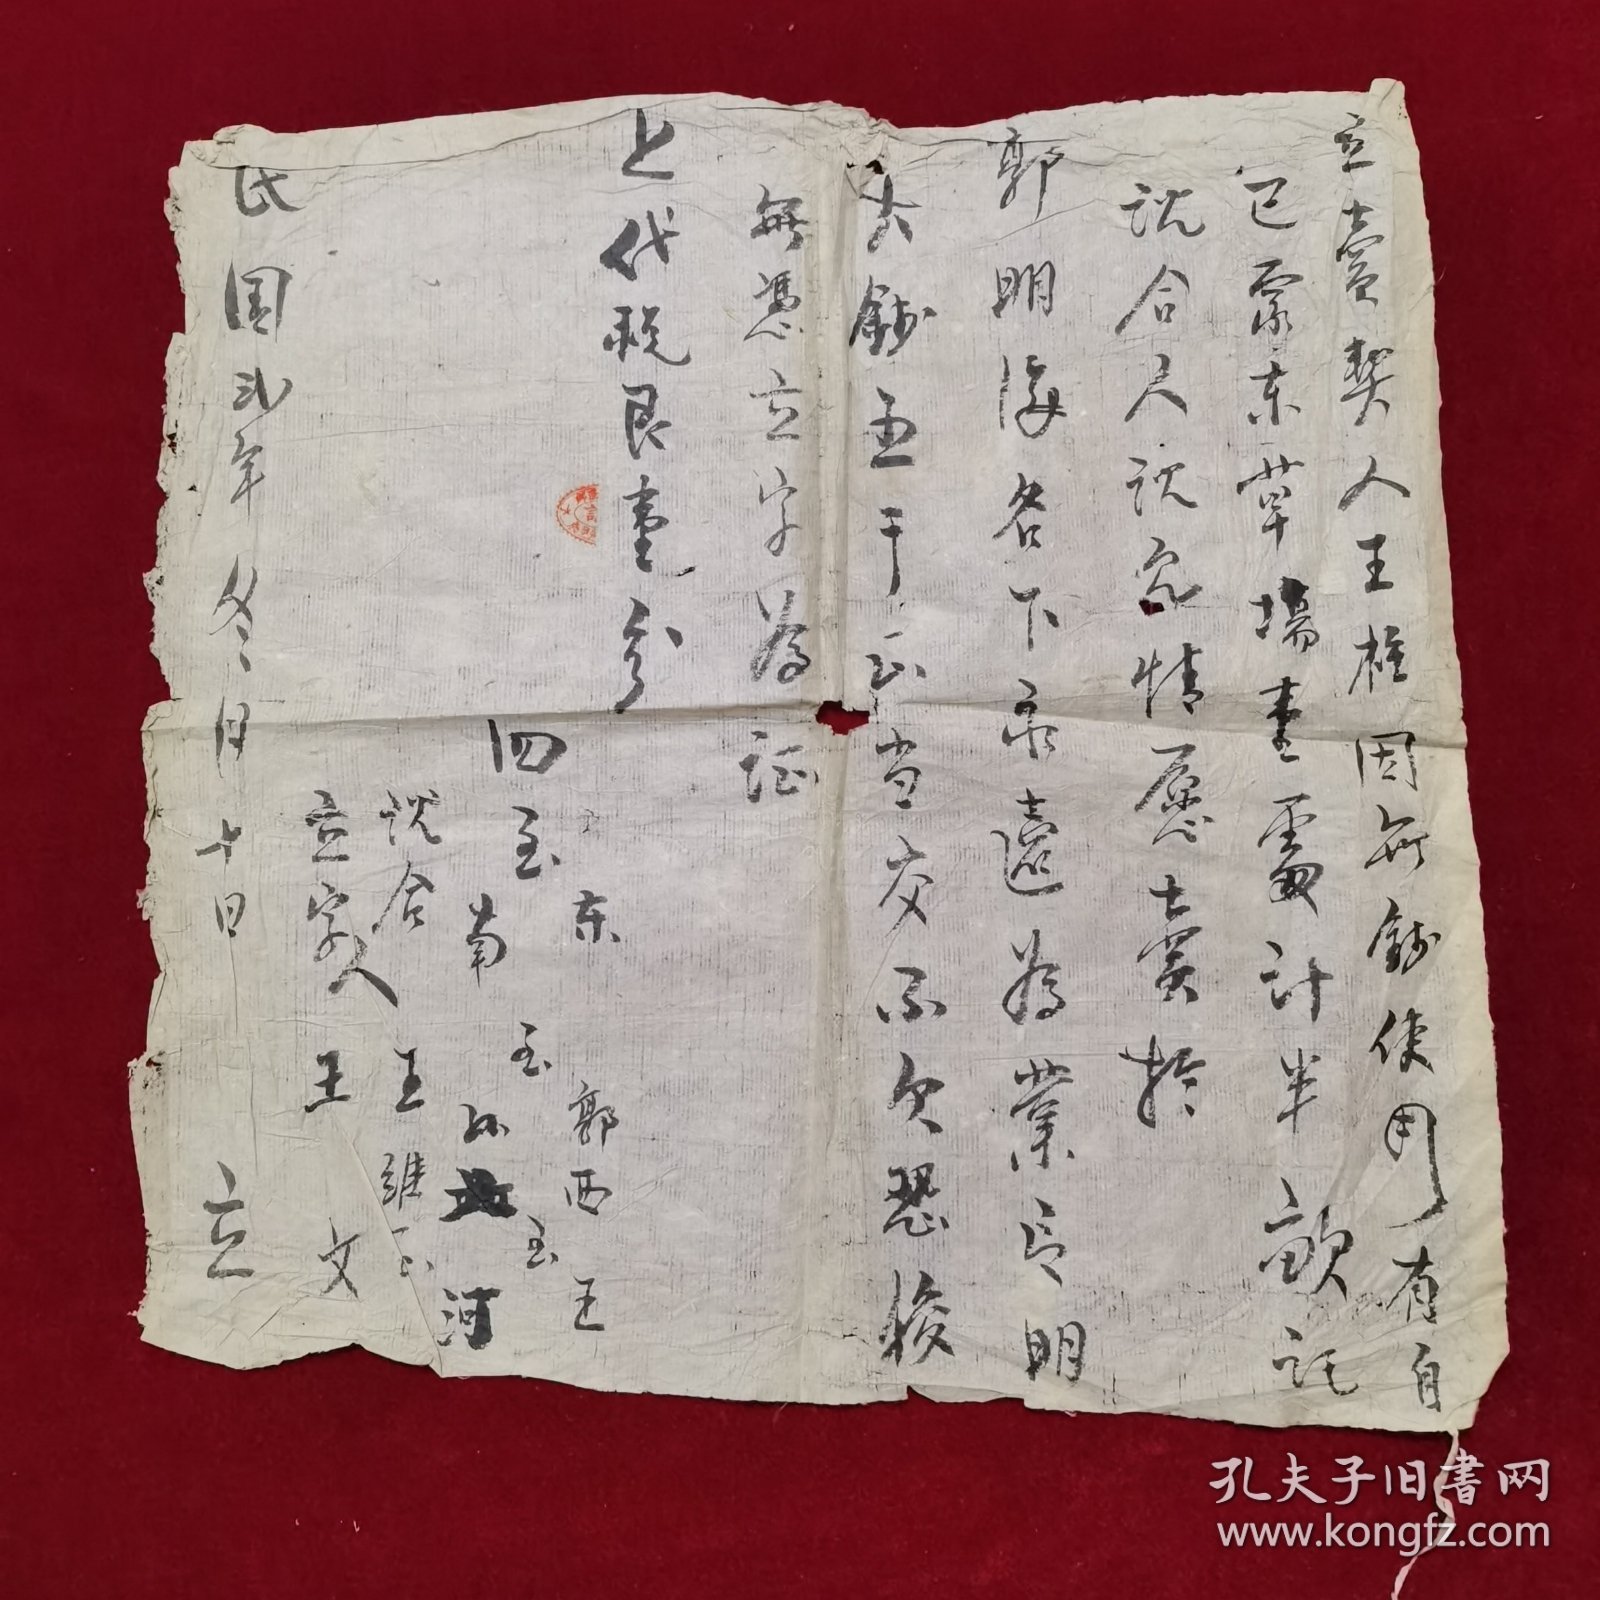 立賣契人王桂因無錢使用有自
己家东草場壹處計半畝託
说合人说允情愿賣於
郭明海名下永遠為業言明
大錢五千正当交不欠恐後
無憑立字為証
上代税艮壹分
四至 东至郭 西至王
南 至河
说合 王維
立字人 王文
民国弍年冬月十日 立
孔夫子旧書网
www.kongfz.com